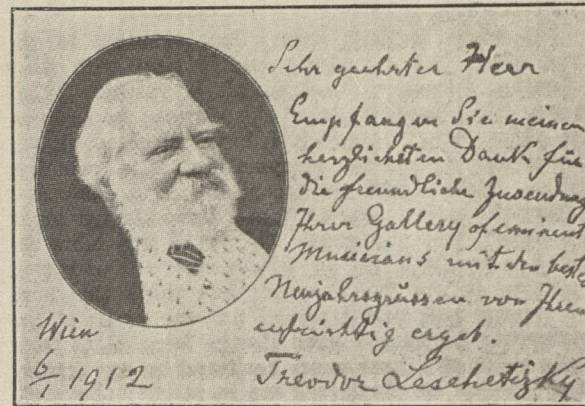 Sehr geehrter Herr
Empfangen Sie meinen
herzlichsten Dank für
die freundliche Zusendung
Ihrer Gallery of eminent
Musicians mit den best
Neujahrsgrüssen von Ihrem
aufrichtig ergeb.
Theodor Leschetizky
Wien
6/1 1912